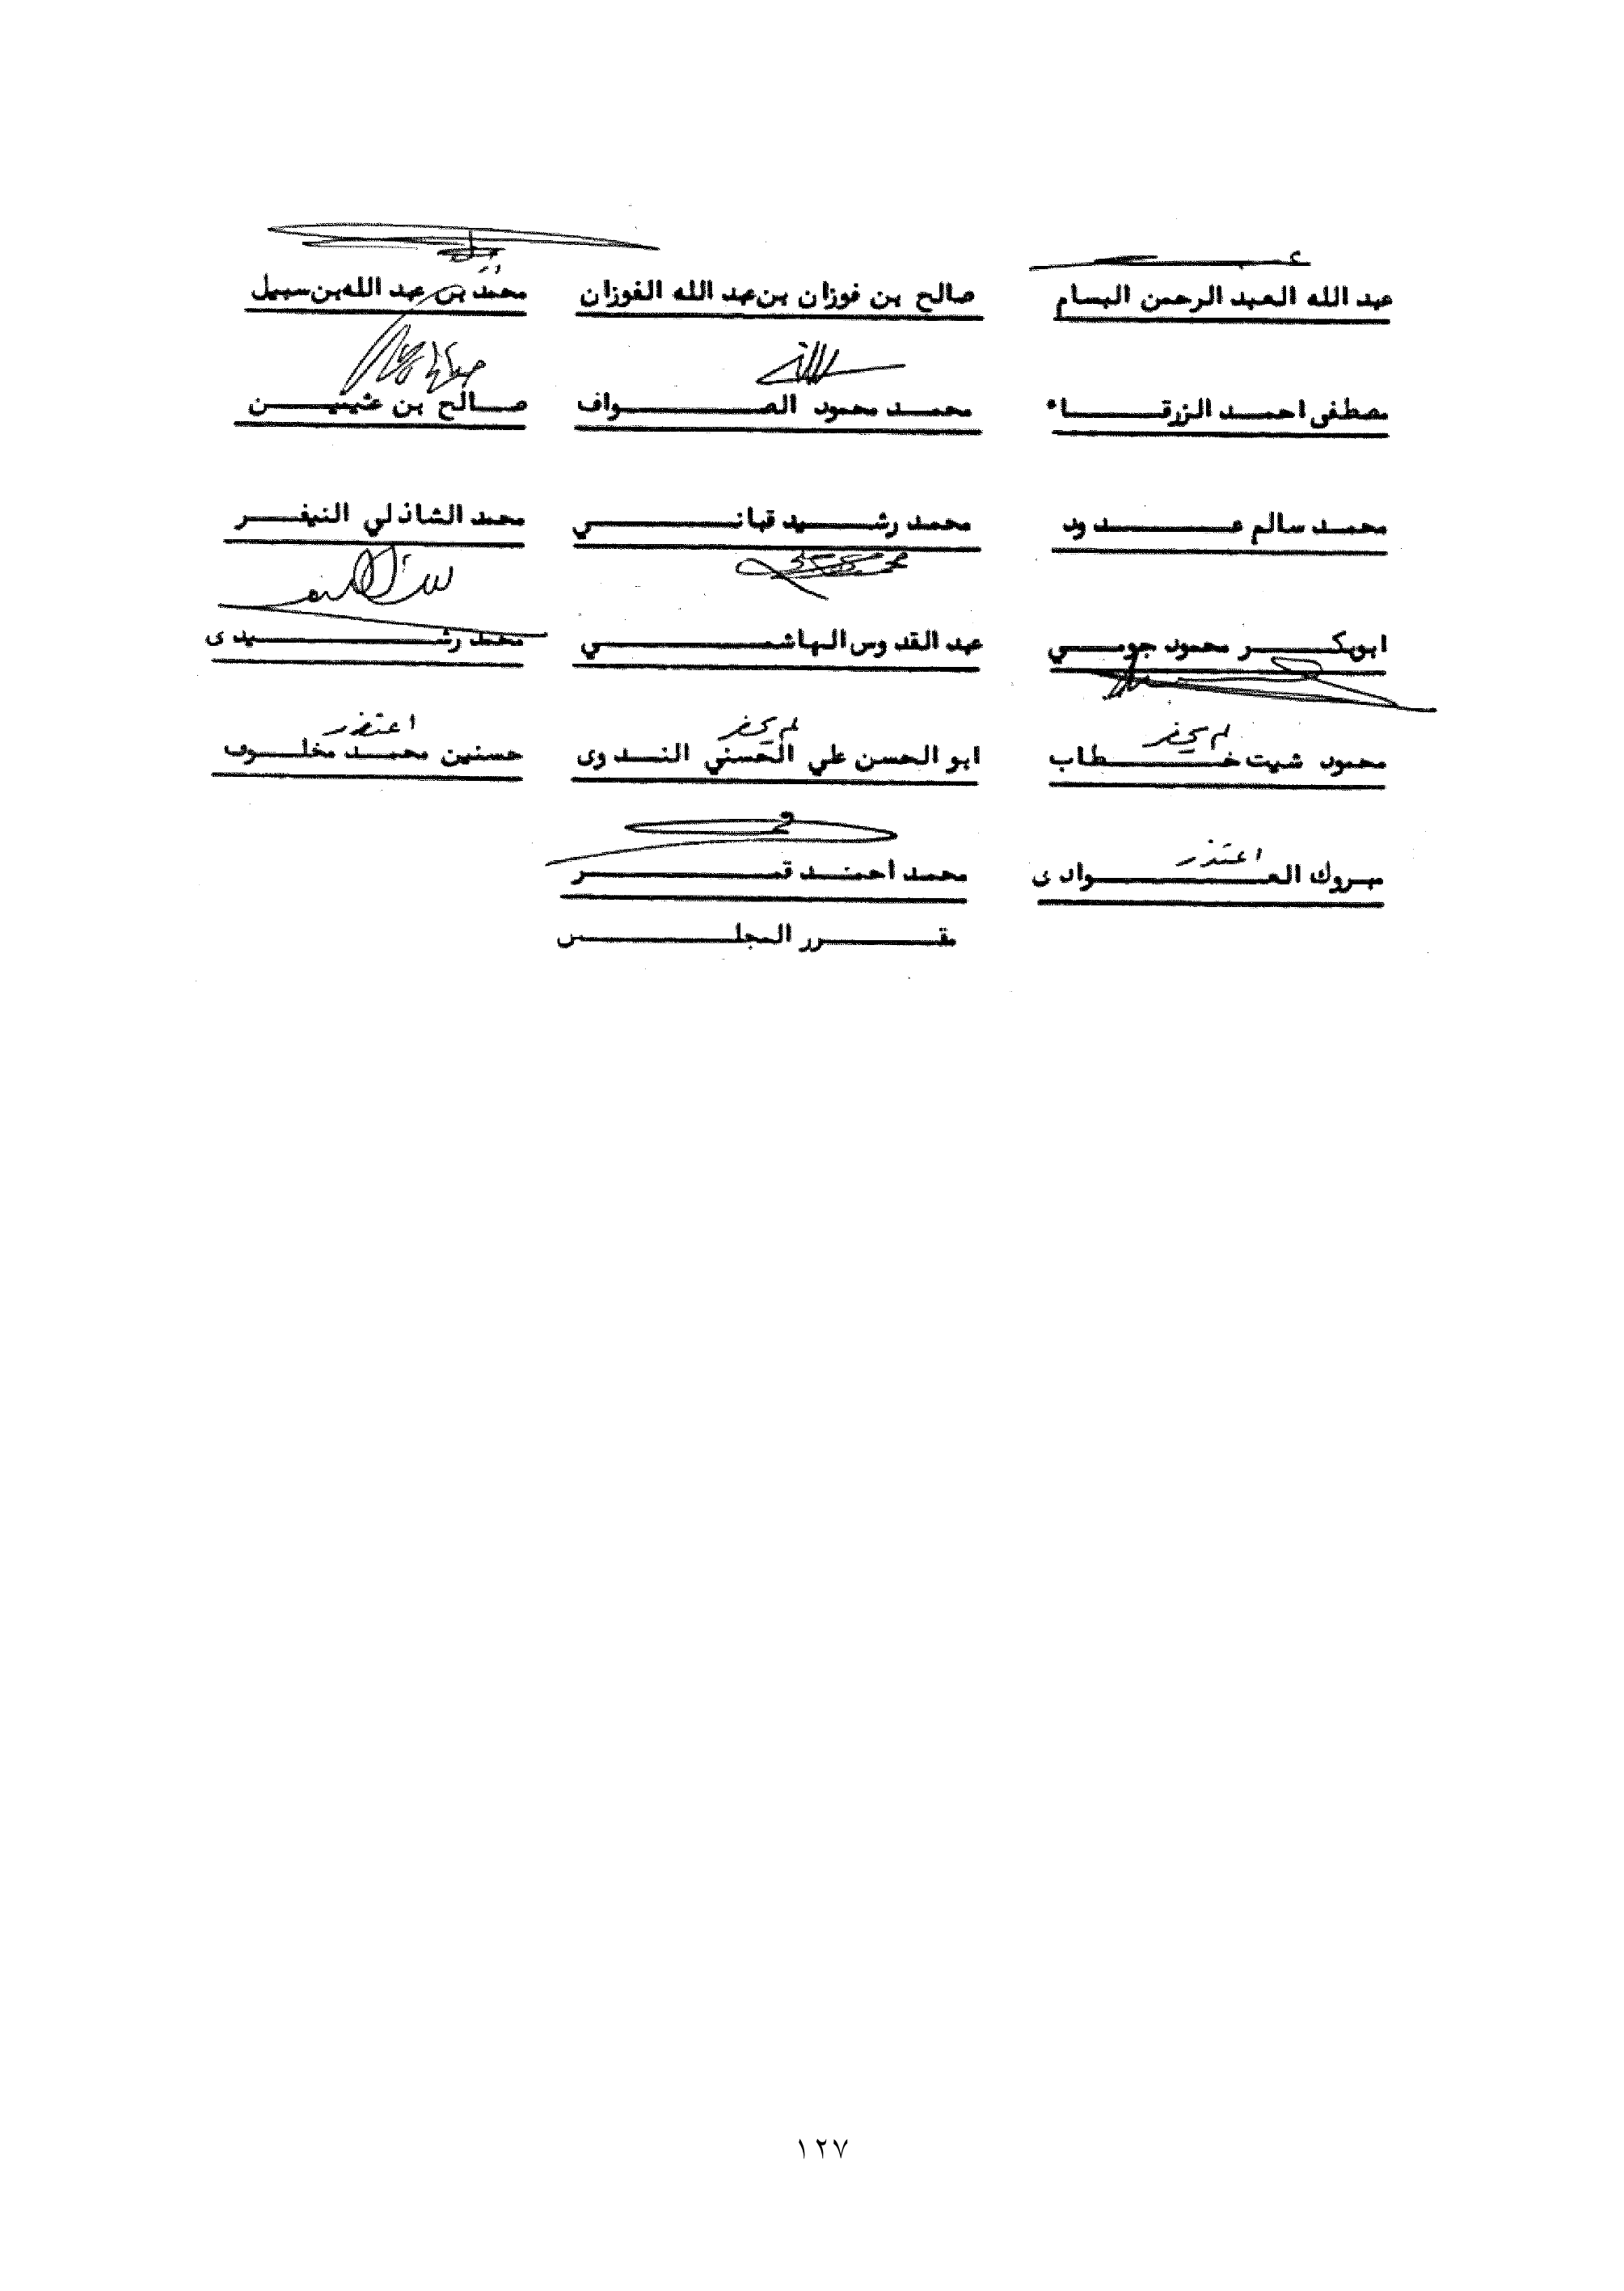 عبد الله العبد الرحمن البسام صالح بن فوزان بن عبد الله الفوزان محمد بن عبد الله بن سبيل
مصطفى احمد الزرقاء محمد محمود الصواف صالح بن عثيمين
محمد سالم عدود محمد رشيد قباني محمد الشاذلي النيفر
ابوبكر محمود جومي عبد القدوس الهاشمي محمد رشيدى
لم يحضر لم يحضر اعتذر
محمود شيت خطاب ابو الحسن علي الحسني الندوى حسنين محمد مخلوف
اعتذر
مبروك العوادى محمد أحمد قمر
مقرر المجلس
١٢٧